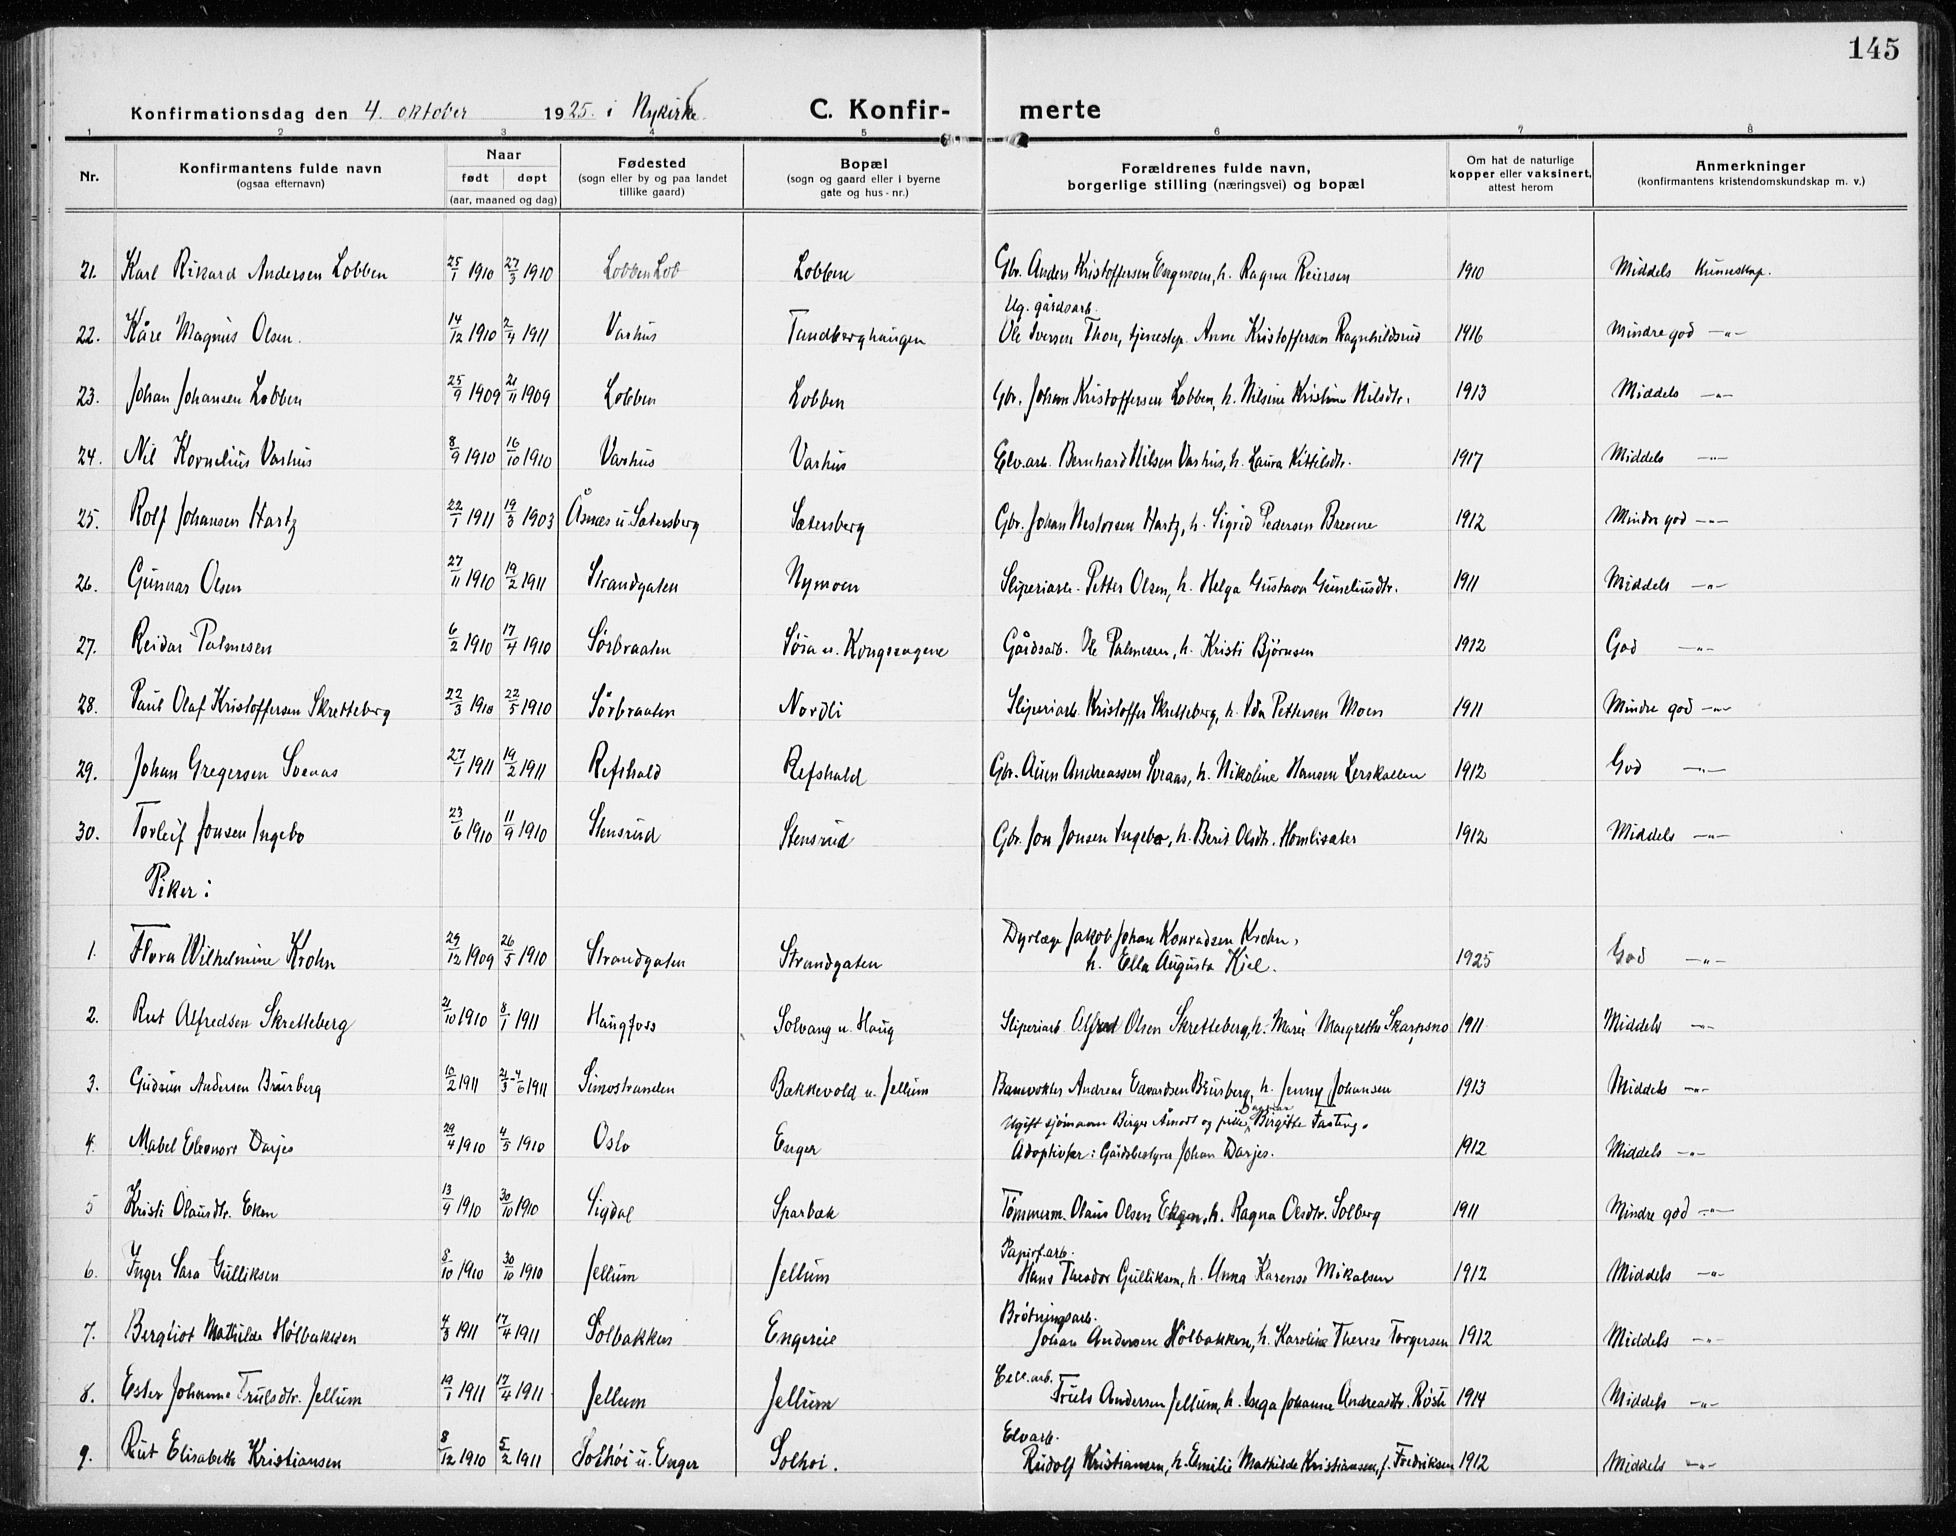 145
Konfirmationsdag den 4. oktober 1925. i Nykirke. C. Konfir- merte
1 2 3 4 5 6 7 8
Nr. Konfirmantens fulde navn (ogsaa efternavn) Naar født døpt (aar, maaned og dag) Fødested (sogn eller by og paa landet tillike gaard) Bopæl (sogn og gaard eller i byerne gate og hus - nr.) Forældrenes fulde navn, borgerlige stilling (næringsvei) og bopæl Om hat de naturlige kopper eller vaksinert, attest herom Anmerkninger (konfirmantens kristendomskundskap m. v.)
21. Karl Rikard Andersen Lobben 25/1 1910 27/3 1910 Lobben Lob Lobben Gbr. Anders Kristoffersen Engmoen, h. Ragna Reiersen 1910 Middels Kunnskap.
Ug. gårdsarb.
22. Kåre Magnus Olsen. 14/12 1910 2/4 1911 Varhus Tandberghaugen Ole Iversen Thon, tjenestep. Anne Kristoffersen Ragnhildsrud 1916 Mindre god -"-
23. Johan Johansen Lobben 25/9 1909 21/11 1909 Lobben Lobben Gbr. Johan Kristoffersen Lobben, h. Nilsine Kristine Nilsdtr. 1913 Middels -"-
24. Nil Kornelius Varhus 8/9 1910 16/10 1910 Varhus Varhus Elv.arb. Bernhard Nilsen Varhus, h. Laura Kittilsdtr. 1917 Middels -"-
25. Rolf Johansen Hartz 22/1 1911 19/3 1903 Åsnæs u. Sætersberg Sætersberg Gbr. Johan Nestorsen Hartz, h. Sigrid Pedersen Brenne 1912 Mindre god -"-
26. Gunnar Olsen 27/11 1910 19/2 1911 Strandgaten Nymoen Sliperiarb. Petter Olsen, h. Helga Gustava Guneliusdtr. 1911 Middels -"-
27. Reidar Palmesen 6/2 1910 17/4 1910 Sørbraaten Søia u. Kongssagene Gårdsarb. Ole Palmesen, h. Kristi Bjørnsen 1912 God -"-
28. Paul Olaf Kristoffersen Skretteberg 22/3 1910 22/5 1910 Sørbraaten Nordli Sliperiarb. Kristoffer Skretteberg, h. Ida Pettersen Moen 1911 Mindre god -"-
29. Johan Gregersen Sveaas 27/1 1911 19/2 1911 Refshald Refshald Gbr. Auen Andreassen Sveaas, h. Nikoline Hansen Lerskallen 1912 God -"-
30. Torleif Jonsen Ingebo 23/6 1910 11/9 1910 Stensrud Stensrud Gbr. Jon Jonsen Ingebo, h. Berit Olsdtr. Homlisæter 1912 Middels -"-
Piker:
Dyrlæge Jakob Johan Konradsen Krohn,
1. Flora Wilhelmine Krohn 29/12 1909 26/5 1910 Strandgaten Strandgaten h. Ella Augusta Kiel. 1925 God -"-
2. Rut Alfredsen Skretteberg 21/10 1910 8/1 1911 Haugfoss Solvang u. Haug Sliperiarb. Alfred Olsen Skretteberg, h. Marie Margrethe Skarpsno 1911 Middels -"-
3. Gudrun Andersen Brurberg 10/2 1911 21/3-4/6 1911 Simostranden Bækkevold u. Jellum Banevokter Andreas Edvardsen Brurberg, h. Jenny Johansen 1913 Middels -"-
Ugift sjømann Birger Arnodt og pike Dagmar Birgitte Fasting.
4. Mabel Eleonore Darjes 29/4 1910 4/5 1910 Oslo Enger Adoptivfar: Gårdsbestyrer Johan Darjes. 1912 Middels -"-
5 Kristi Olausdtr. Eken 13/9 1910 30/10 1910 Sigdal Sparbæk Tømmerm. Olaus Olsen Eken, h. Ragna Olsdtr. Solberg 1911 Mindre god -"-
Papirf.arb.
6. Inger Sara Gulliksen 8/10 1910 30/10 1910 Jellum Jellum Hans Theodor Gulliksen, h. Anna Karense Mikalsen 1912 Middels -"-
Brøtningsarb.
7. Bergliot Mathilde Hølbakken 4/3 1911 17/4 1911 Solbakken Engereie Johan Andersen Hølbakken, h. Karoline Therese Torgersen 1912 Middels -"-
Cell.arb.
8. Ester Johanne Trulsdtr. Jellum 19/1 1911 17/4 1911 Jellum Jellum Truls Andersen Jellum, h. Inga Johanne Andreasdtr. Røsti 1914 Middels -"-
Elvarb.
9. Rut Elisabeth Kristiansen 8/12 1910 5/2 1911 Solhøi u. Enger Solhøi. Rudolf Kristiansen, h. Emilie Mathilde Kristiansen, f. Fredriksen 1912 Middels -"-